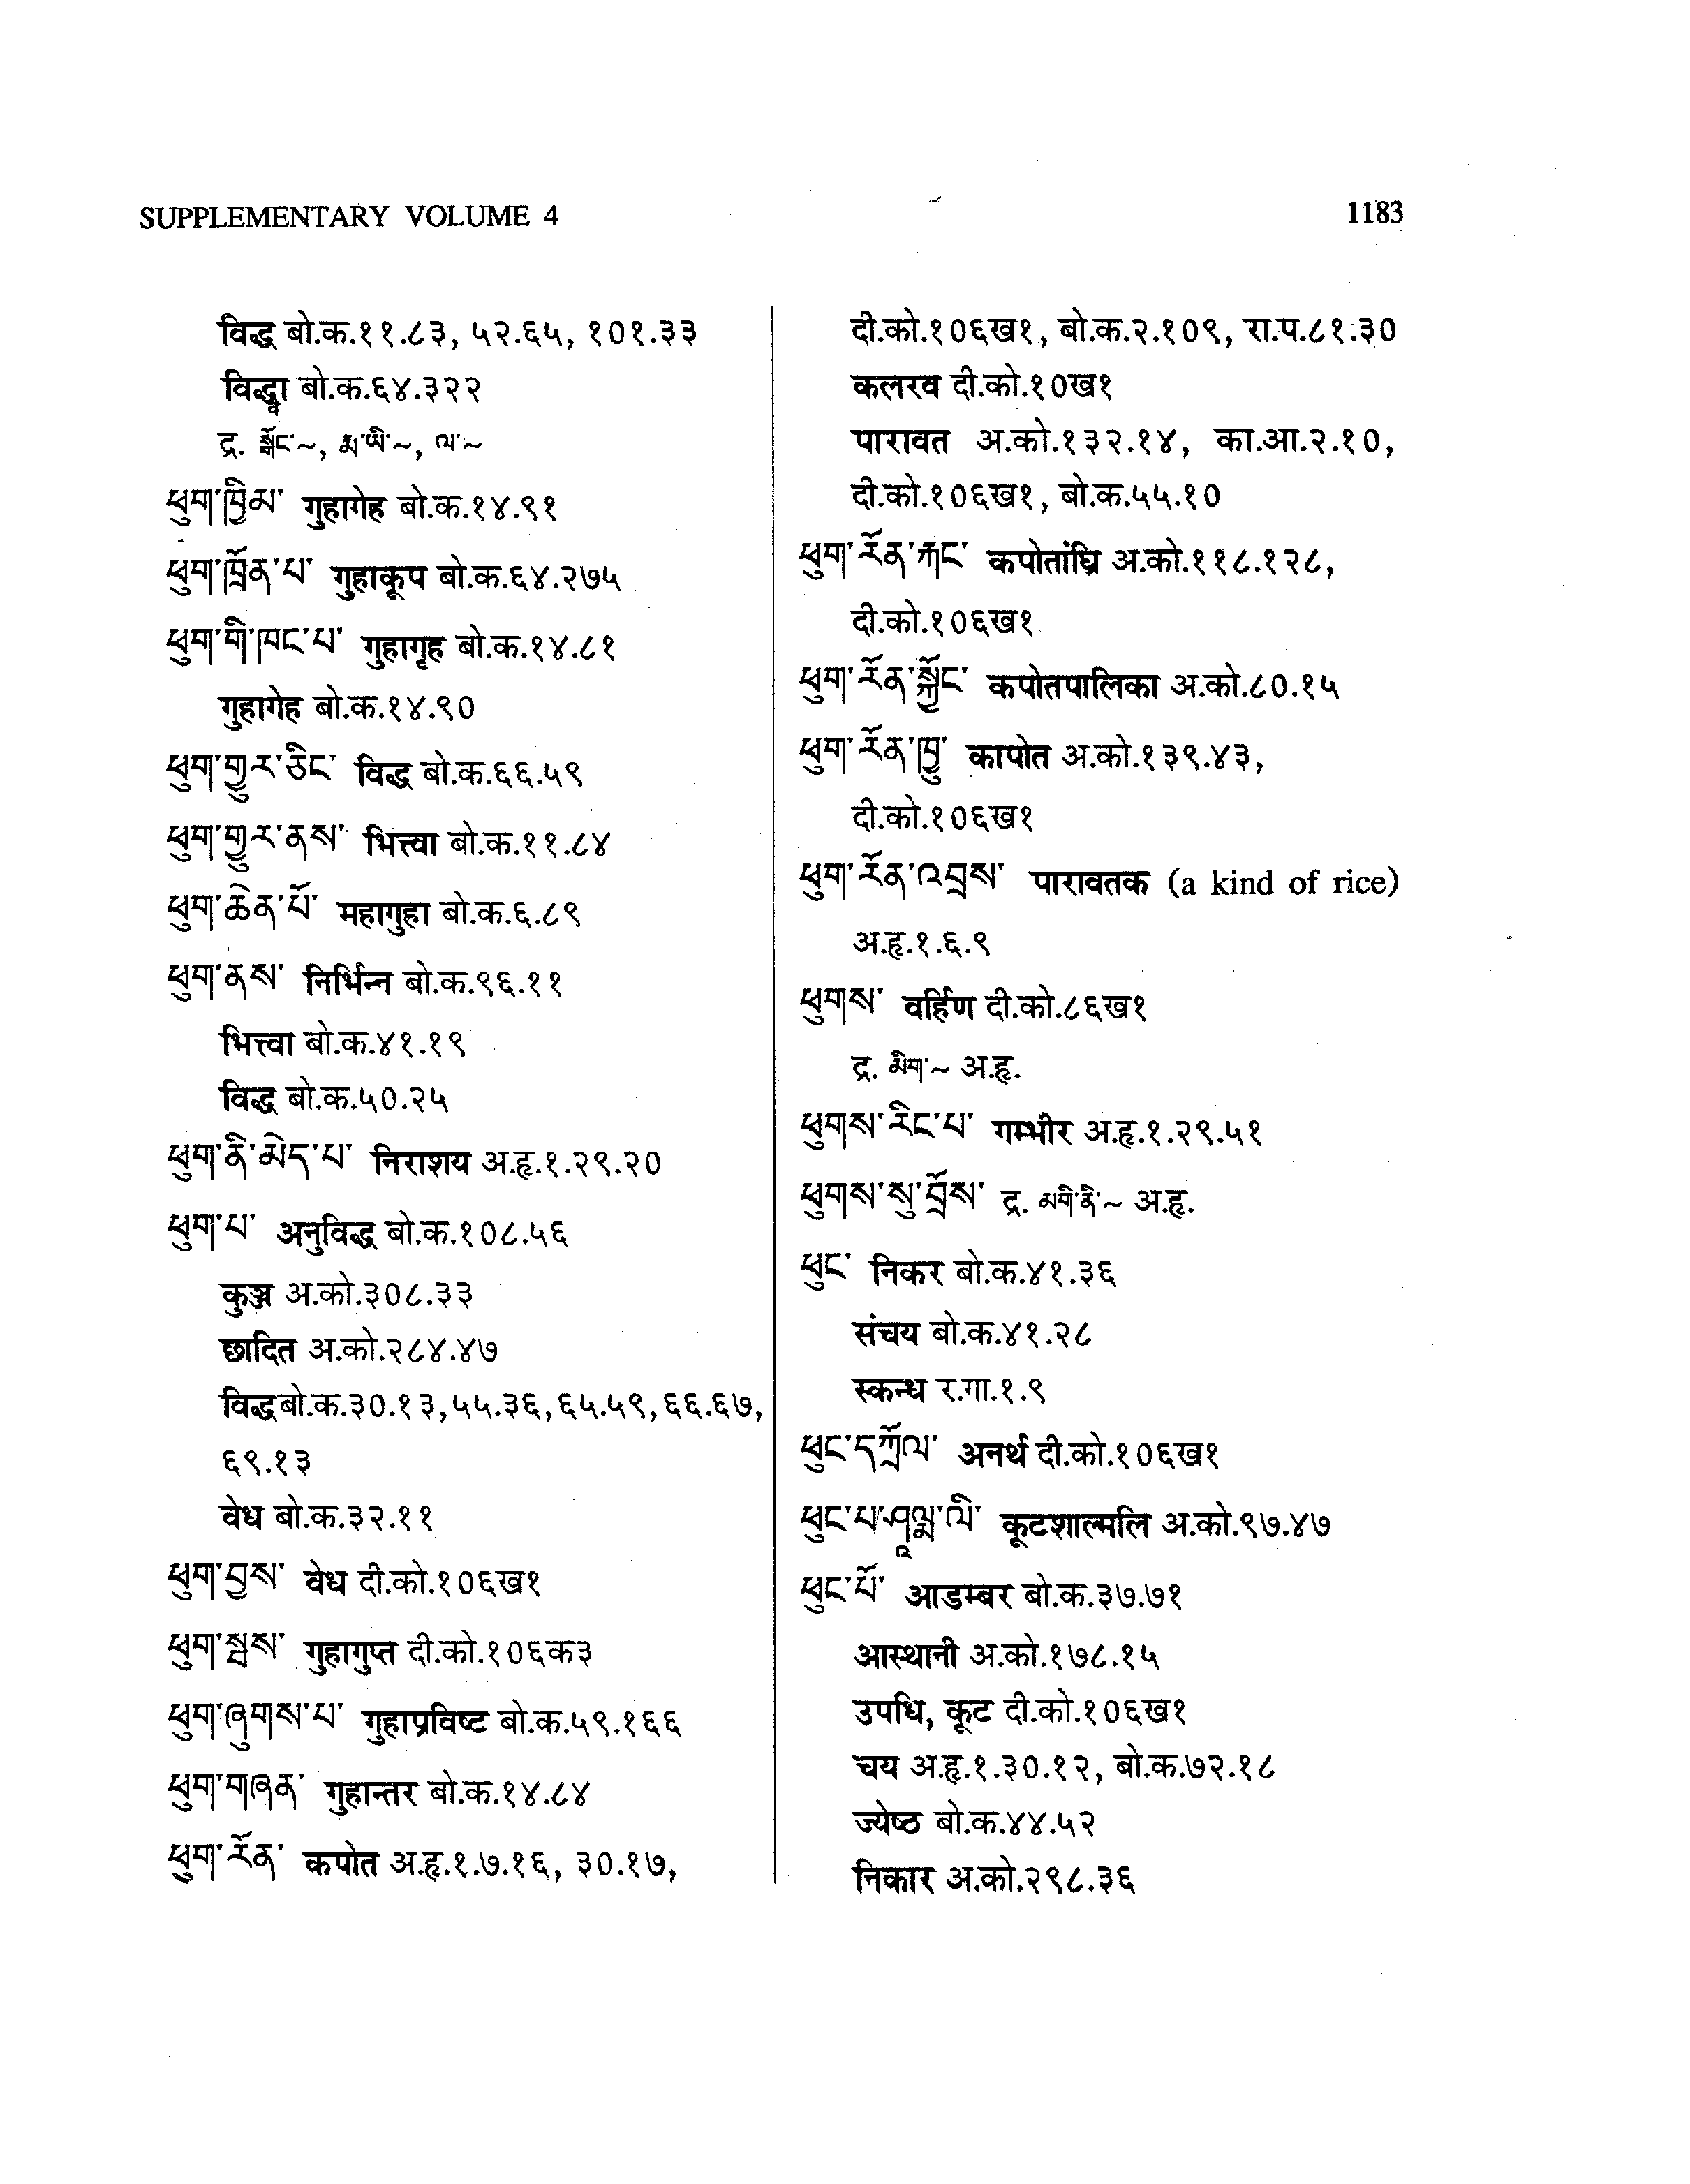 SUPPLEMENTARY VOLUME 4
1183
विद्ध बो.क.११.८३, ५२.६५, १०१.३३
विद्ध्वा बो.क.६४.३२२
द्र. སྒོང་~, རྨ་ཡི་~, ལ་~
ཕུག་ཁྱིམ་ गुहागेह बो.क.१४.९१
ཕུག་ཁྲོན་པ་ गुहाकूप बो.क.६४.२७५
ཕུག་གི་ཁང་པ་ गुहागृह बो.क.१४.८१
गुहागेह बो.क.१४.९०
ཕུག་གྱུར་ཅིང་ विद्ध बो.क.६६.५९
ཕུག་གྱུར་ནས་ भित्त्वा बो.क.११.८४
ཕུག་ཆེན་པོ་ महागुहा बो.क.६.८९
ཕུག་ནས་ निर्भिन्न बो.क.९६.११
भित्त्वा बो.क.४१.१९
विद्ध बो.क.५०.२५
ཕུག་ནི་མེད་པ་ निराशय अ.हृ.१.२९.२०
ཕུག་པ་ अनुविद्ध बो.क.१०८.५६
कुञ्ज अ.को.३०८.३३
छादित अ.को.२८४.४७
विद्ध बो.क.३०.१३, ५५.३६, ६५.५९, ६६.६७,
६९.१३
वेध बो.क.३२.११
ཕུག་བྱས་ वेध दी.को.१०६ख१
ཕུག་སྦས་ गुहागुप्त दी.को.१०६क३
ཕུག་ཞུགས་པ་ गुहाप्रविष्ट बो.क.५९.१६६
ཕུག་གཞན་ गुहान्तर बो.क.१४.८४
ཕུག་རོན་ कपोत अ.हृ.१.७.१६, ३०.१७,
दी.को.१०६ख१, बो.क.२.१०९, रा.प.८१.३०
कलरव दी.को.१०ख१
पारावत अ.को.१३२.१४, का.आ.२.१०,
दी.को.१०६ख१, बो.क.५५.१०
ཕུག་རོན་རྐང་ कपोतांघ्रि अ.को.११८.१२८,
दी.को.१०६ख१
ཕུག་རོན་སྐྱོང་ कपोतपालिका अ.को.८०.१५
ཕུག་རོན་ཁྱུ་ कापोत अ.को.१३९.४३,
दी.को.१०६ख१
ཕུག་རོན་འབྲས་ पारावतक (a kind of rice)
अ.हृ.१.६.९
ཕུགས་ वर्हिण दी.को.८६ख१
द्र. མིག་~ अ.हृ.
ཕུགས་རིང་པ་ गम्भीर अ.हृ.१.२९.५१
ཕུགས་སུ་བྲོས་ द्र. མགི་ནི་~ अ.हृ.
ཕུང་ निकर बो.क.४१.३६
संचय बो.क.४१.२८
स्कन्ध र.गा.१.९
ཕུང་དཀྲོལ་ अनर्थ दी.को.१०६ख१
ཕུང་པ་ཤཱལྨ་ལི་ कूटशाल्मलि अ.को.९७.४७
ཕུང་པོ་ आडम्बर बो.क.३७.७१
आस्थानी अ.को.१७८.१५
उपधि, कूट दी.को.१०६ख१
चय अ.हृ.१.३०.१२, बो.क.७२.१८
ज्येष्ठ बो.क.४४.५२
निकार अ.को.२९८.३६